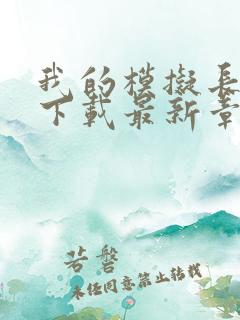 我的模擬長
下載最新章
若磐
未经同意禁止转载